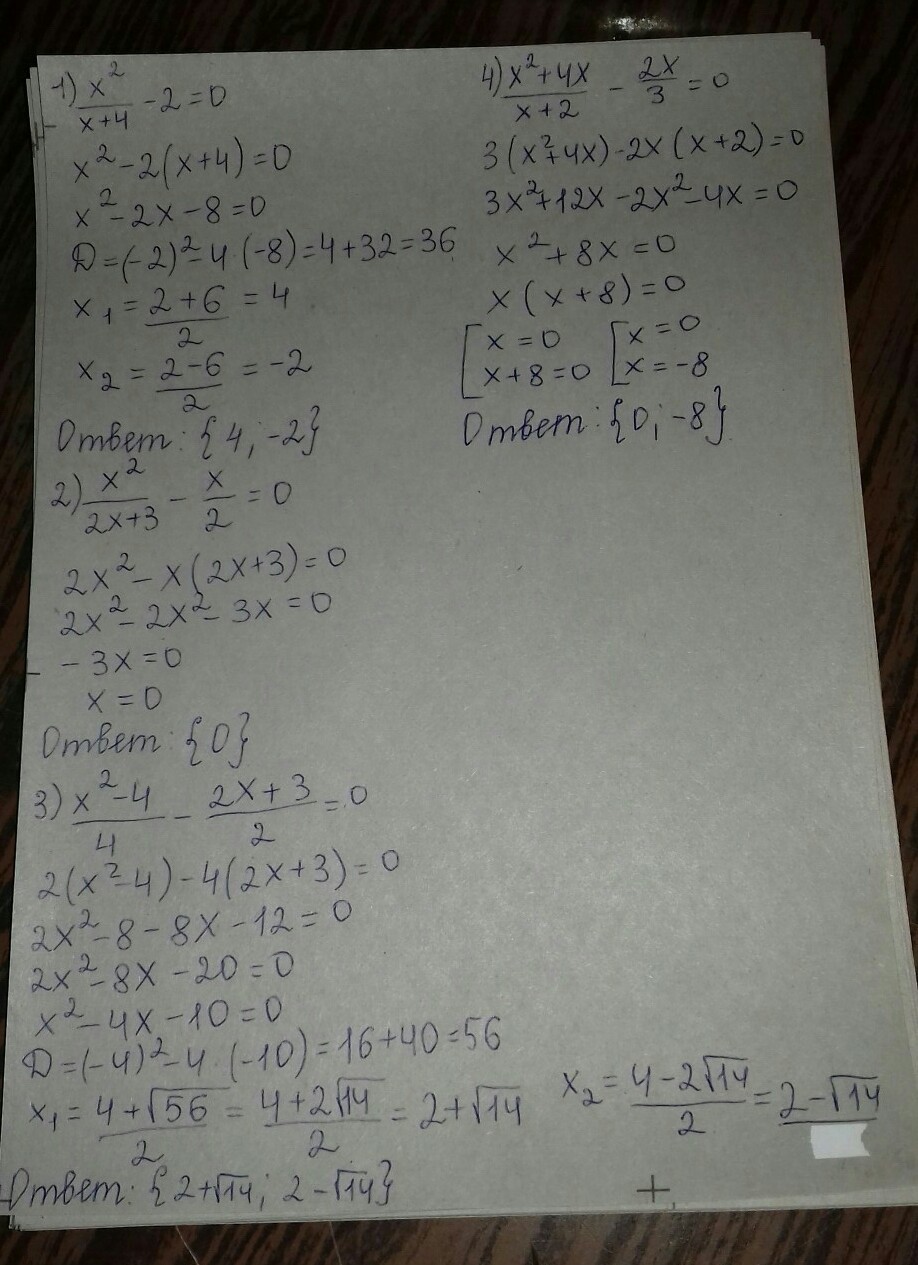 1) x²/(x+4) - 2 = 0
x² - 2(x+4) = 0
x² - 2x - 8 = 0
D = (-2)² - 4·(-8) = 4 + 32 = 36
x₁ = (2+6)/2 = 4
x₂ = (2-6)/2 = -2
Ответ: {4; -2}
2) x²/(2x+3) - x/2 = 0
2x² - x(2x+3) = 0
2x² - 2x² - 3x = 0
-3x = 0
x = 0
Ответ: {0}
3) (x²-4)/4 - (2x+3)/2 = 0
2(x²-4) - 4(2x+3) = 0
2x² - 8 - 8x - 12 = 0
2x² - 8x - 20 = 0
x² - 4x - 10 = 0
D = (-4)² - 4·(-10) = 16 + 40 = 56
x₁ = (4+√56)/2 = (4+2√14)/2 = 2+√14
x₂ = (4-2√14)/2 = 2-√14
Ответ: {2+√14; 2-√14}
4) (x²+4x)/(x+2) - 2x/3 = 0
3(x²+4x) - 2x(x+2) = 0
3x² + 12x - 2x² - 4x = 0
x² + 8x = 0
x(x+8) = 0
[x = 0 [x = 0
[x+8 = 0 [x = -8
Ответ: {0; -8}